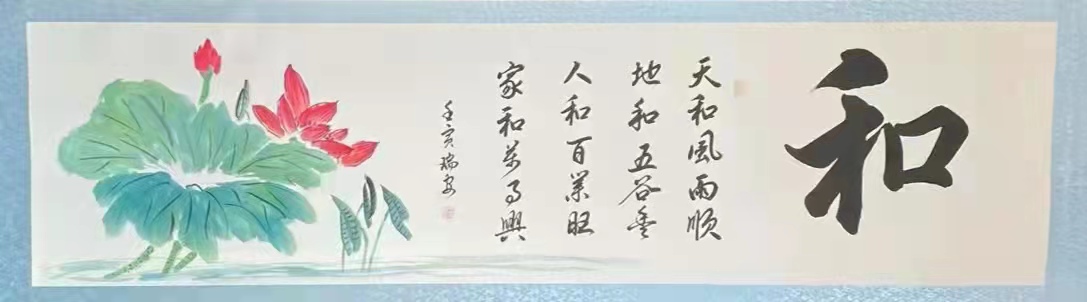 和
天和風雨順
地和五谷豊
人和百業旺
家和万事興
壬寅瑞安